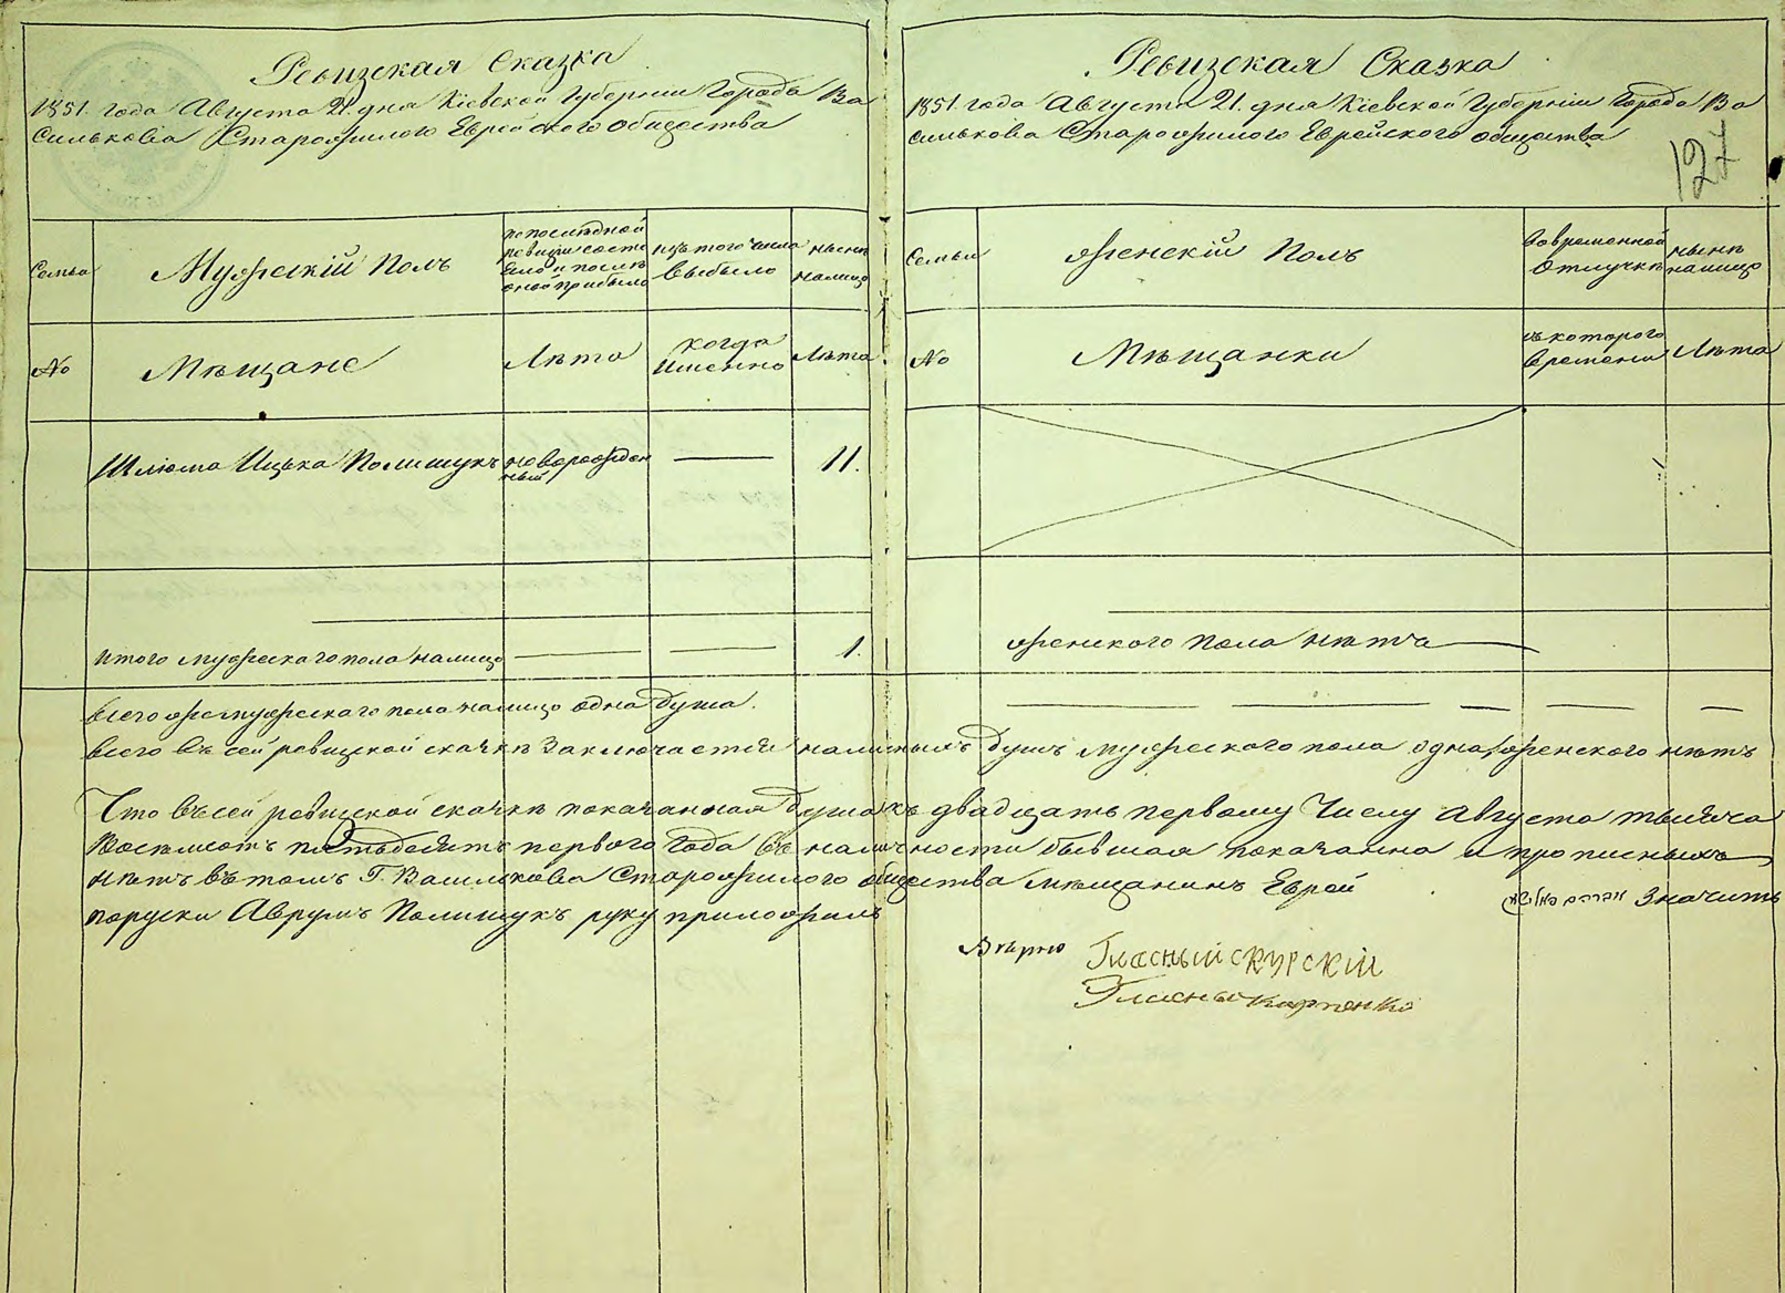 Ревизская Сказка
1851. года Августа 21. дня Кіевской Губерніи Города Ва
силькова Старожилого Еврейского общества
Семьи
Мужескій Полъ
по последней
ревизіи состо
яло и после
оной прибыло
изъ того числа
выбыло
ныне
налицо
№
Мѣщане
Лѣта
когда
Именно
Лѣта
Шлюма Ицька Полищукъ
новорожден
ный
11.
Итого мужескаго пола налицо
1.
Всего же мужескаго пола налицо одна душа.
Ревизская Сказка
1851. года Августа 21. дня Кіевской Губерніи Города Ва
силькова Старожилого Еврейского общества
127
Семьи
Женскій Полъ
Вовременной
Отлучкѣ
ныне
налицо
№
Мѣщанки
съ которого
времени
Лѣта
женского пола нѣтъ
Всего въ сей ревизской сказкѣ заключается наличныхъ душъ мужеского пола одна женского нѣтъ
Что въ сей ревизской сказкѣ показанная душа къ двадцать первому Числу Августа тысяча
Восемсотъ пятьдесятъ первого Года въ наличности бывшая показанна и прописныхъ
нѣтъ въ томъ Г. Василкова Старожилого общества мѣщанинъ Еврей
значитъ
поруски Аврумъ Полищукъ руку приложилъ
Вѣрно Гласный Скурскій
Гласны Карпенко